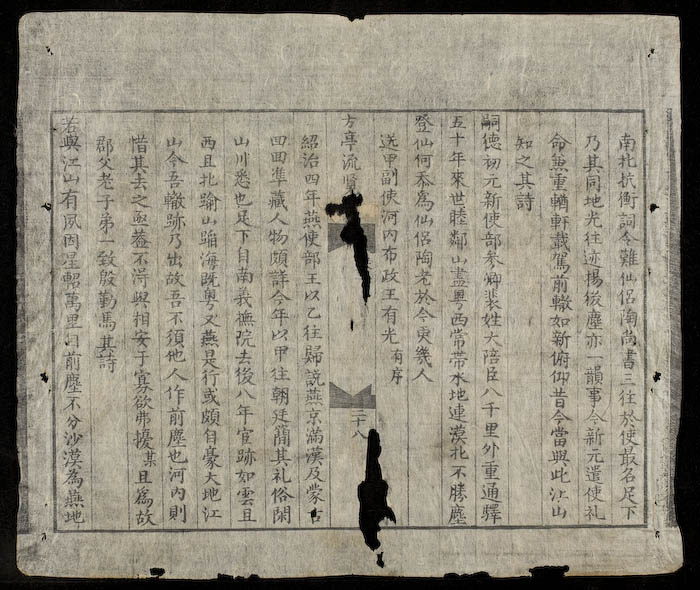 南北抗衡詞令難仙侶陶尚書三往於使最名足下
乃其同地光往迹揚後塵亦一韻事今新元遣使礼
命兼重輶軒載駕前轍如新俯仰昔今當與此江山
知之其詩
嗣德初元新使部參卿裴姓大陪臣八千里外重通驛
五十年來世睦鄰山盡粵西常帶水地連漠北不勝塵
登仙何忝為仙侶陶老於今更幾人
送甲副使河內布政王有光有序
方亭流
二十八
紹治四年燕使部王以乙往歸說燕京滿漢及蒙古
四回準藏人物頗詳今年以甲往朝廷簡其礼俗閑
山川悉也足下自南義撫院去後八年宦跡如雲且
西且北踰山蹈海既粵又燕是行或頗自豪大地江
山令吾轍跡乃出故吾不須他人作前塵也河內則
惜其去之亟蓋不淂與相安于寞欲弗擾某且為故
郡父老子弟一致殷勤焉其詩
若與江山有夙因星軺萬里目前塵不分沙漠為燕地